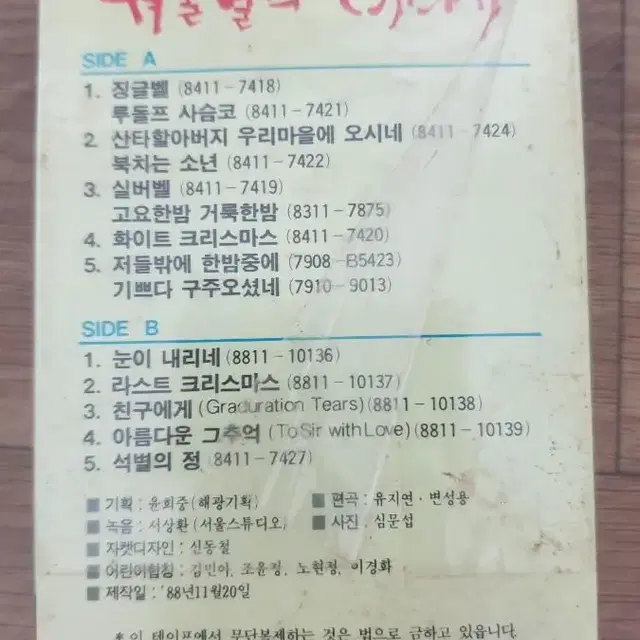 SIDE A
1. 징글벨 (8411-7418)
루돌프 사슴코 (8411-7421)
2. 산타할아버지 우리마을에 오시네 (8411-7424)
북치는 소년 (8411-7422)
3. 실버벨 (8411-7419)
고요한밤 거룩한밤 (8311-7875)
4. 화이트 크리스마스 (8411-7420)
5. 저들밖에 한밤중에 (7908-B5423)
기쁘다 구주오셨네 (7910-9013)
SIDE B
1. 눈이 내리네 (8811-10136)
2. 라스트 크리스마스 (8811-10137)
3. 친구에게 (Graduration Tears) (8811-10138)
4. 아름다운 그추억 (To Sir with Love) (8811-10139)
5. 석별의 정 (8411-7427)
■ 기획 : 윤희중 (해광기획) ■ 편곡 : 유지연 · 변성용
■ 녹음 : 서상환 (서울스튜디오) ■ 사진 : 심문섭
■ 자켓디자인 : 신동철
■ 어린이합창 : 김민아, 조윤정, 노현정, 이경화
■ 제작일 : '88년11월20일
* 이 테이프에서 무단복제하는 것은 법으로 금하고 있읍니다.